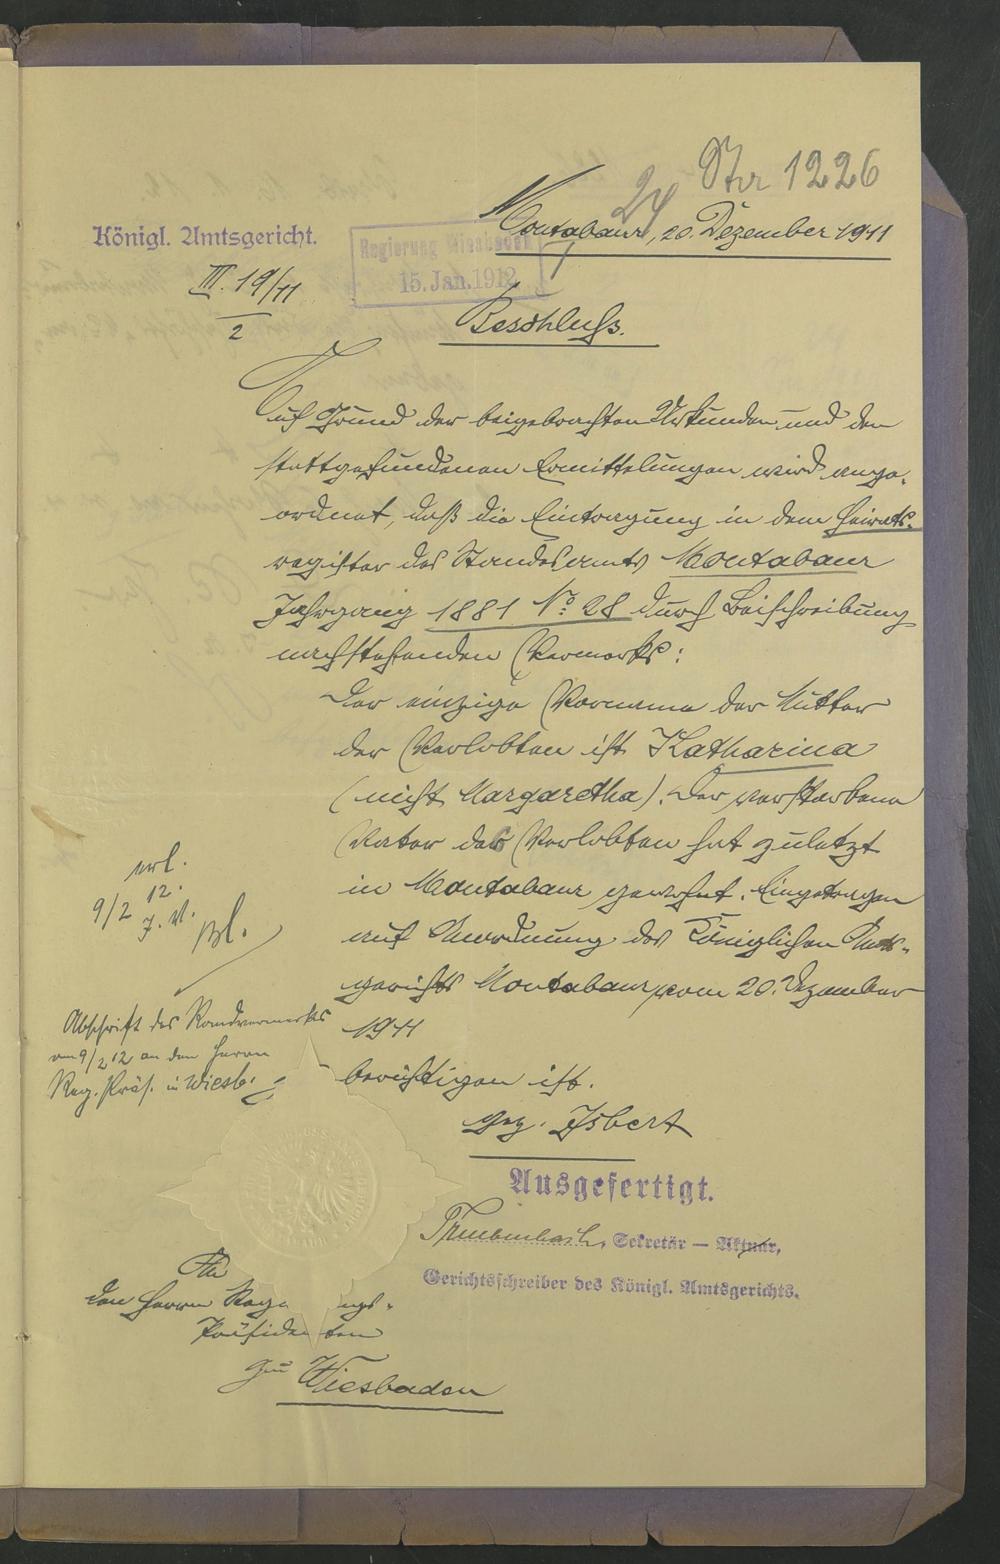 1226
24
Montabaur, 20. Dezember 1911
Königl. Amtsgericht.
III. 19/11
2
Regierung Wiesbaden
15. Jan. 1912
Beschluß.
Auf Grund der beigebrachten Urkunden und der
stattgefundenen Ermittelungen wird ange-
ordnet, daß die Eintragung in dem Heirats-
register des Standesamts Montabaur
Jahrgang 1881 No 28 durch Beischreibung
nachstehenden Vermerks:
Der einzige Vorname der Mutter
der Verlobten ist Katharina
(nicht Margaretha). Der verstorbene
Vater des Verlobten hat zuletzt
in Montabaur gewohnt. Eingetragen
auf Anordnung des Königlichen Amts-
gerichts Montabaur vom 20. Dezember
1911
berichtigen ist.
gez. Isbert
erl.
9/2 12.
J. V.
Abschrift des Randvermerks
am 9/2 12 an den Herrn
Reg. Präs. in Wiesb.
Ausgefertigt.
Sekretär — Aktuar,
Gerichtsschreiber des Königl. Amtsgerichts.
An
den Herrn Regierungs-
Präsidenten
zu Wiesbaden